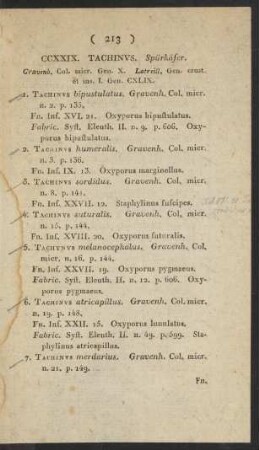 ( 213 )
CCXXIX. TACHINVS. Spürkäfer.
Gravenh. Col. micr. Gen. X. Latreill. Gen. crust.
et ins. I. Gen. CXLIX.
1. TACHINVS bipustulatus. Gravenh. Col. micr.
n. 2. p. 135.
Fn. Inſ. XVI. 21. Oxyporus bipuſtulatus.
Fabric. Syſt. Eleuth. II. n. 9. p. 606. Oxy-
porus bipuſtulatus.
2. TACHINVS humeralis. Gravenh. Col. micr.
n. 3. p. 136.
Fn. Inſ. IX. 13. Oxyporus marginellus.
3. TACHINVS sordidus. Gravenh. Col. micr.
n. 8. p. 141.
Fn. Inſ. XXVII. 12. Staphylinus fuſcipes.
4. TACHINVS suturalis. Gravenh. Col. micr.
n. 15. p. 144.
Fn. Inſ. XVIII. 20. Oxyporus ſuturalis.
5. TACHINVS melanocephalus. Gravenh. Col.
micr. n. 16. p. 144.
Fn. Inſ. XXVII. 19. Oxyporus pygmaeus.
Fabric. Syſt. Eleuth. II. n. 12. p. 606. Oxy-
porus pygmaeus.
6. TACHINVS atricapillus. Gravenh. Col. micr.
n. 19. p. 148.
Fn. Inſ. XXII. 15. Oxyporus lunulatus.
Fabric. Syſt. Eleuth. II. n. 49. p. 599. Sta-
phylinus atricapillus.
7. TACHINVS merdarius. Gravenh. Col. micr.
n. 21. p. 149.
Fn.